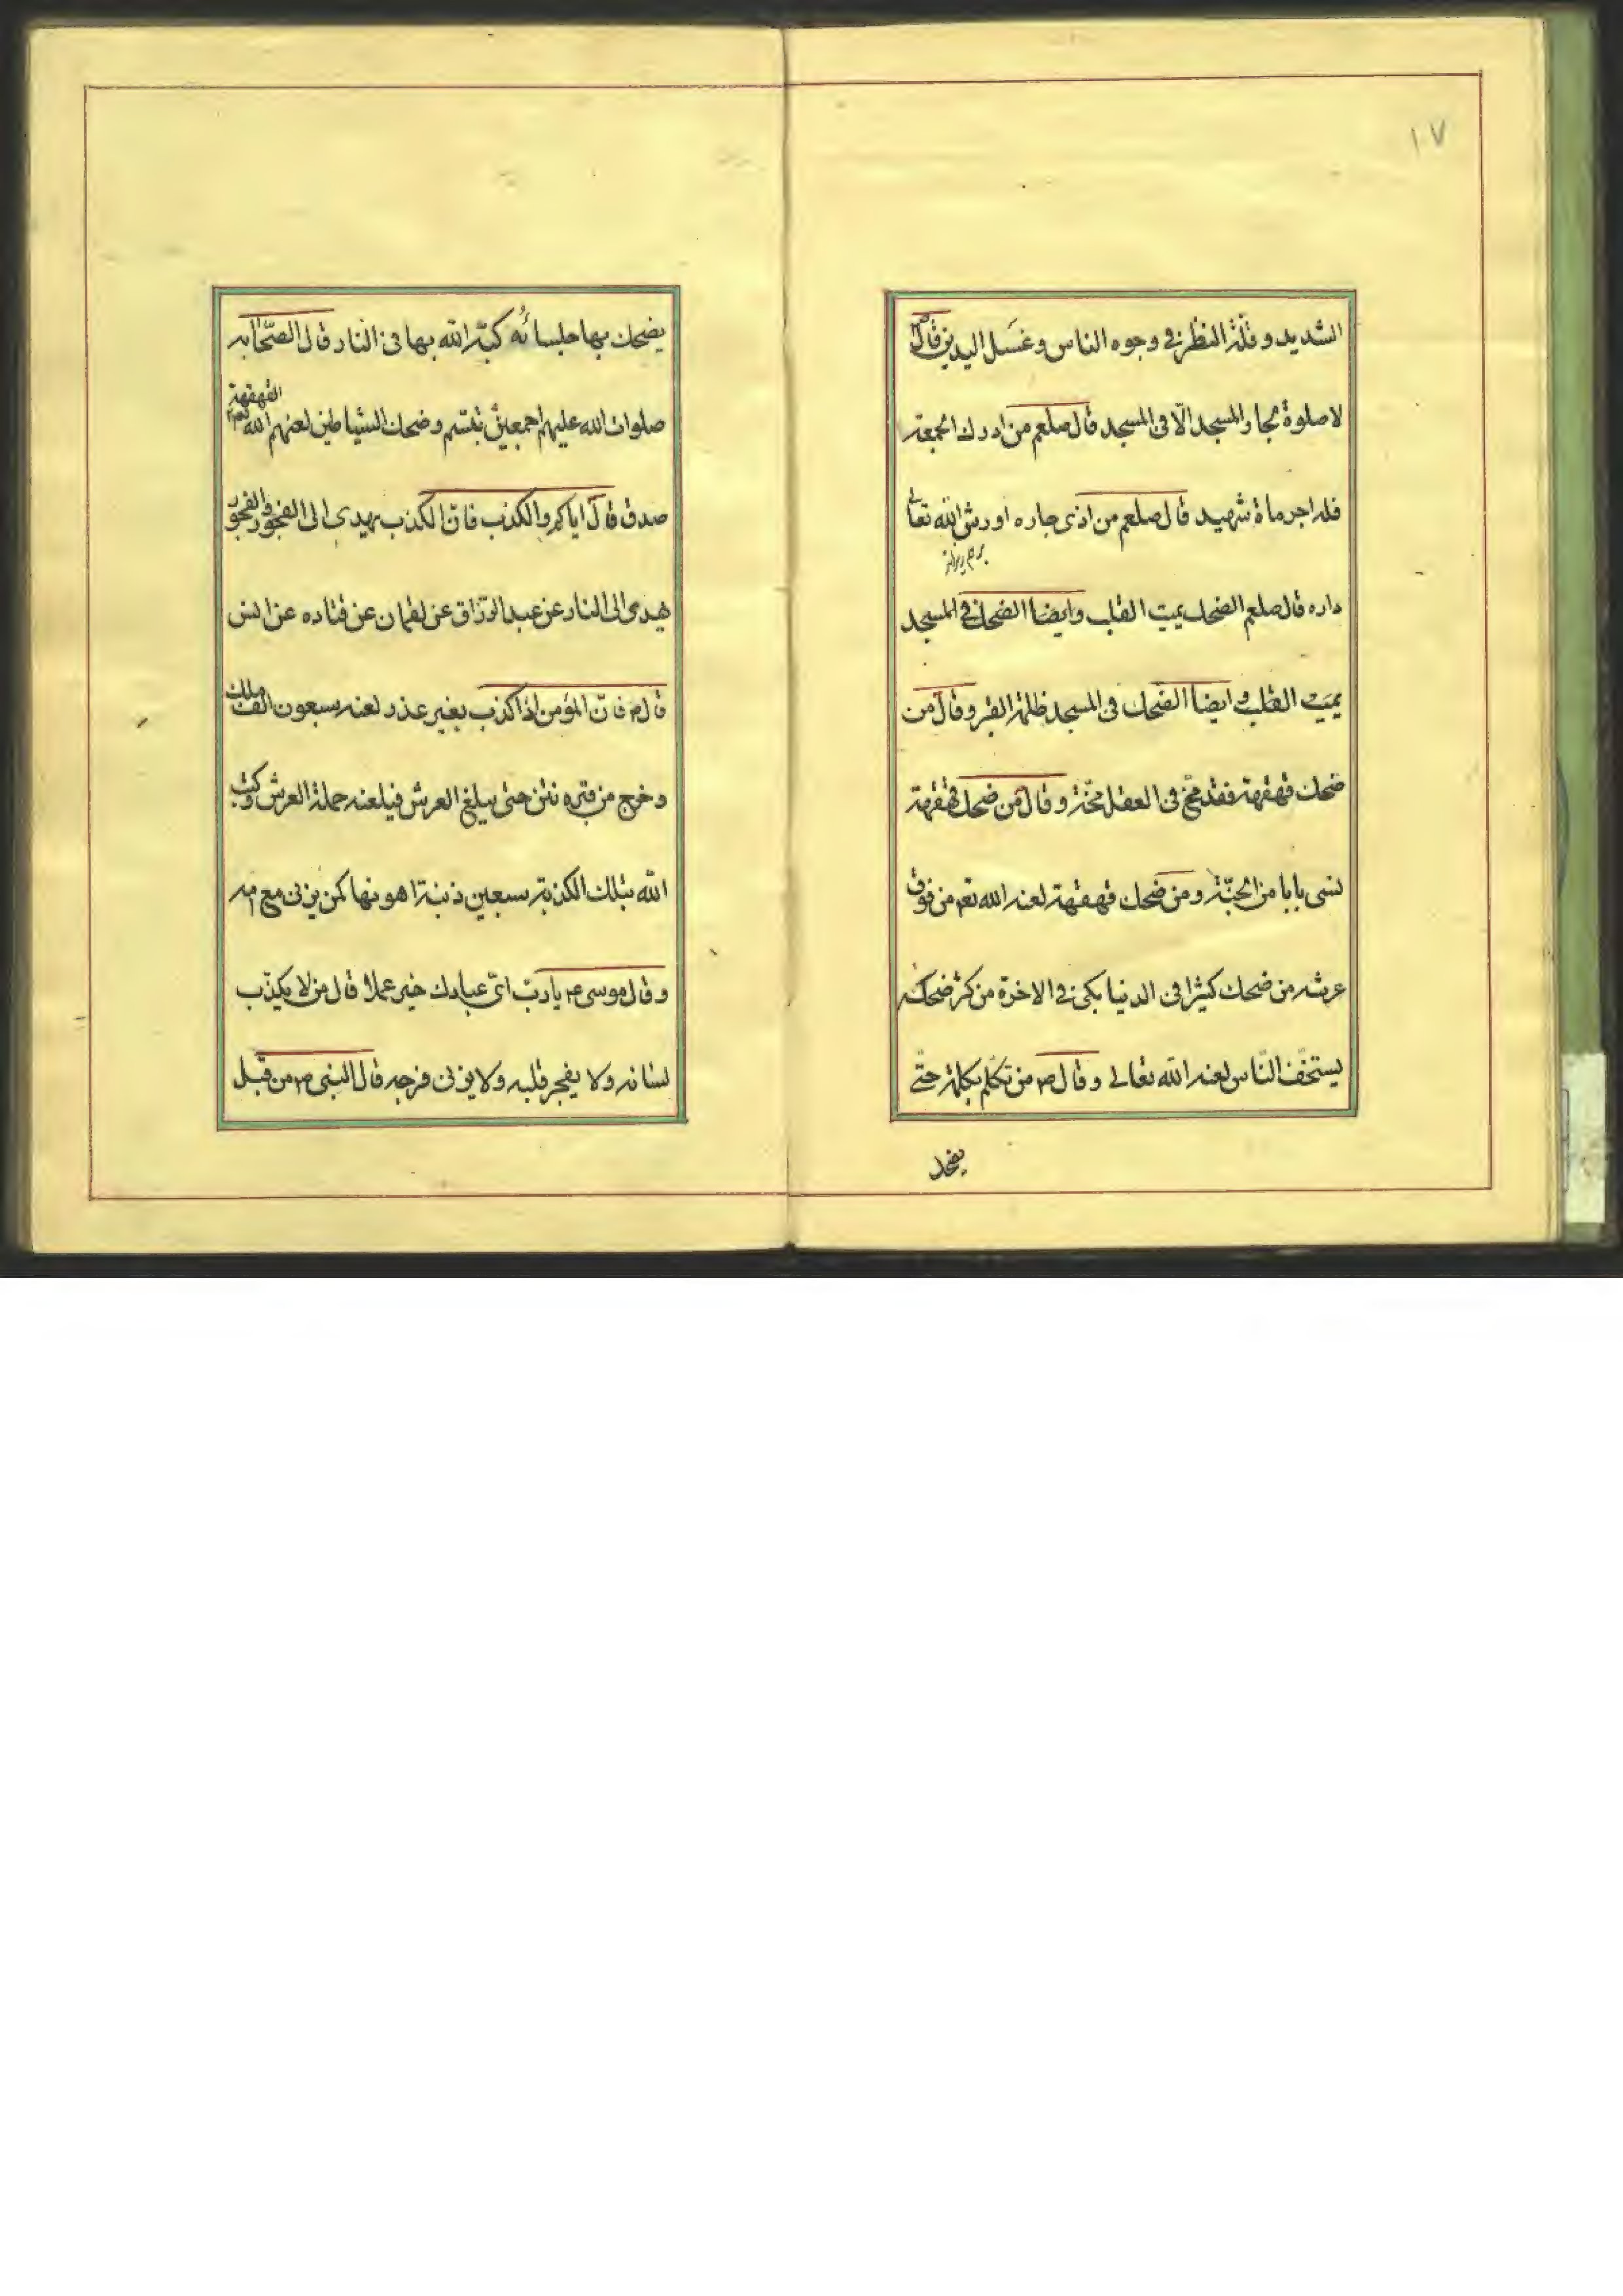 ١٧
الشديد و قلّة النظر فى وجوه الناس و غسل اليدين قال
لا صلوة لجار المسجد الّا فى المسجد قال صلعم من ادرك الجمعة
فله اجر مأة شهيد قال صلعم من اذى جاره اورثه الله تعالى
داره قال صلعم الضحك يميت القلب وايضا الضحك فى المسجد
يميت القلب و ايضا الضحك فى المسجد ظلمة القبر و قال من
ضحك قهقهة فقد مجّ فى العقل مجّة و قال من ضحك قهقهة
نسى بابا من الجنّة و من ضحك قهقهة لعنه الله تعم من فوق
عرشه من ضحك كثيرا فى الدنيا بكى فى الاخرة من كثر ضحكه
يستخف النّاس لعنه الله تعالى و قال ص من تكلّم بكلمة حتّى
يضحك
يضحك بها جلسائه كبّه الله بها فى النار قال الصّحابه
صلوات الله عليهم اجمعين تبسّم و ضحك الشياطين لعنهم الله القهقهة
صدق قال اياكم والكذب فانّ الكذب يهدى الى الفجور والفجور
يهدى الى النار عن عبد الرزاق عن لقمان عن قتاده عن انس
قال ص فانّ المؤمن اذا كذب بغير عذر لعنه سبعون الف ملك
و خرج من قبره نتن حتى يبلغ العرش فيلعنه حملة العرش و كتب
الله بتلك الكذبة سبعين ذنبة اهونها كمن يزنى مع امه
و قال موسى ع يا ربّ اىّ عبادك خير عملا قال من لا يكذب
لسانه ولا يفجر قلبه ولا يزنى فرجه قال النبى ص من قبل